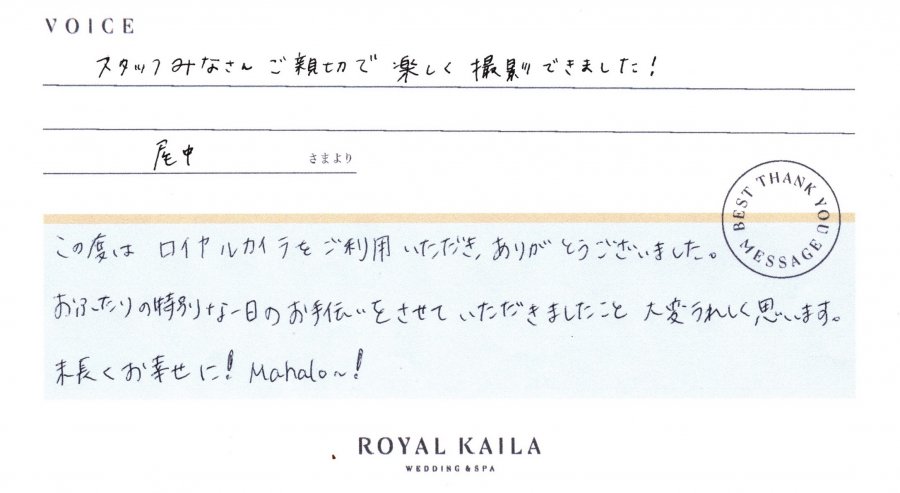 VOICE
スタッフみなさん ご親切で 楽しく 撮影できました!
尾中 さまより
BEST THANK YOU MESSAGE
この度は ロイヤルカイラをご利用いただき、ありがとうございました。
おふたりの特別な一日のお手伝いをさせていただきましたこと 大変うれしく思います。
末長くお幸せに! Mahalo~!
ROYAL KAILA
WEDDING & SPA